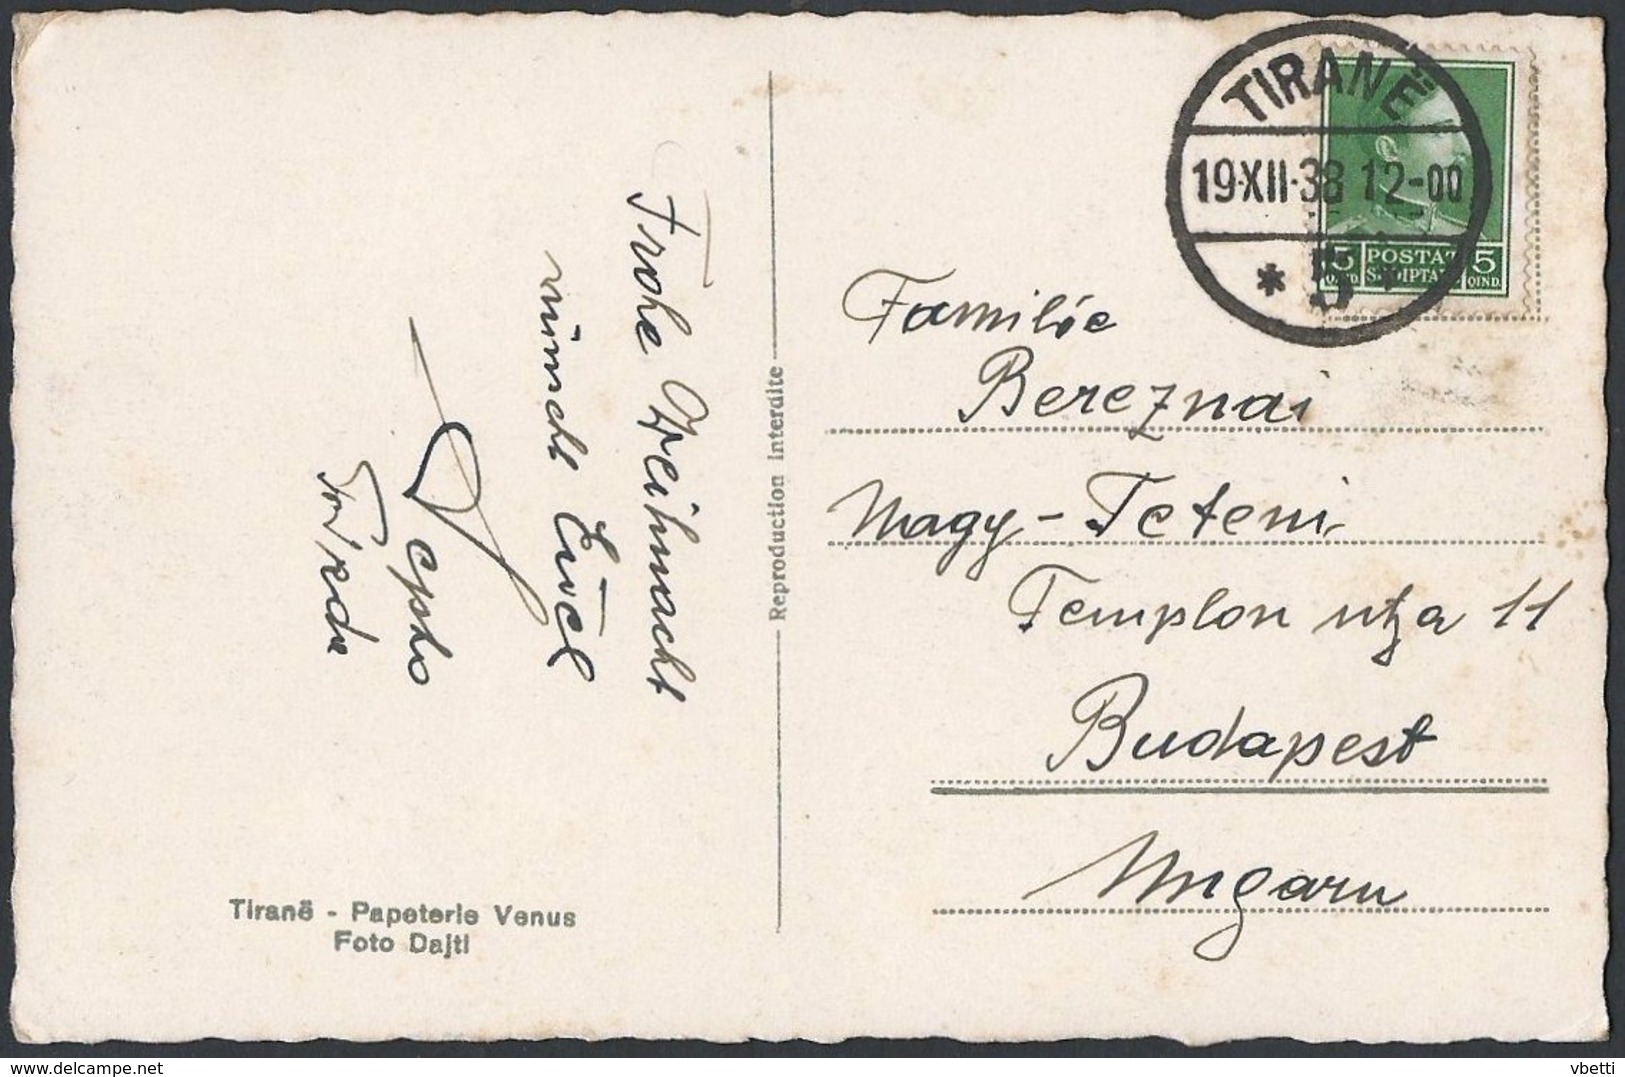 Frohe Weihnacht
wünscht Euch
TIRANË
19·XII·38 12-00
* 5 *
POSTAT
5 5
QIND. QIND.
Familie
Bereznai
Nagy-Teteni
Templon utza 11
Budapest
Ungarn
Reproduction interdite
Tiranë - Papeterie Venus
Foto Dajti
© www.delcampe.net
vbetti